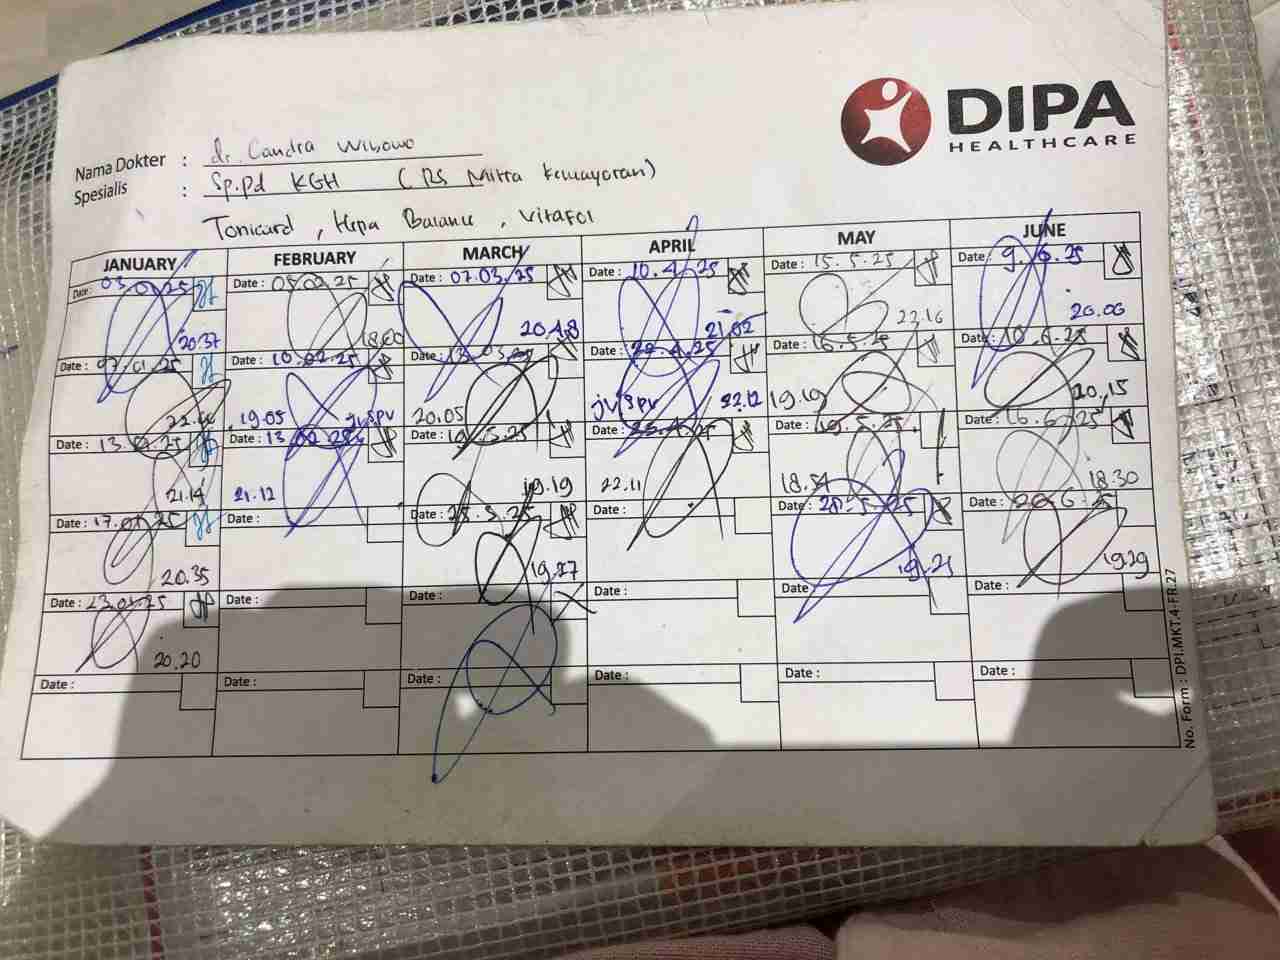 DIPA
HEALTHCARE
Nama Dokter : dr. Candra Wibowo
Spesialis : Sp.Pd KGH (RS Mitra Kemayoran)
Tonicard, Hepa Balance, Vitafol
JANUARY FEBRUARY MARCH APRIL MAY JUNE
Date: 03.01.25 Date : 05.02.25 Date : 07.03.25 Date : 10.4.25 Date : 15.5.25 Date : 9.6.25
20.37 18.00 20.48 21.02 22.16 20.06
Date : 07.01.25 Date : 10.02.25 Date : 13.03 Date : 22.4.25 Date : 16.5.25 Date : 10.6.25
19.05 jv spv 20.05 jv spv 22.12 19.19 20.15
Date : 13. .25 Date : 13.02.25 Date : Date : Date : 19.5.25 Date : 16.6.25
21.14 21.12 19.19 22.11 18.54 18.30
Date : 17.01.25 Date : Date : 25.3.25 Date : Date : 28.5.25 Date : 6.25
20.35 19.27 19.21 19.29
Date : 23.01.25 Date : Date : Date : Date : Date :
20.20
Date : Date : Date : Date : Date : Date :
No. Form : DPI.MKT.4-FR.27